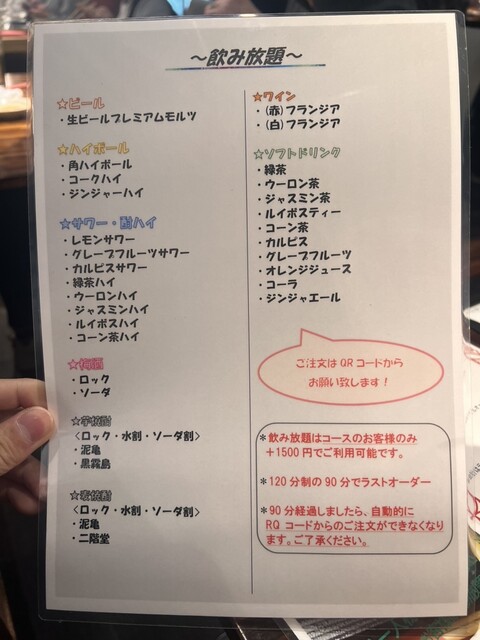 ～飲み放題～
☆ビール
・生ビールプレミアムモルツ
☆ハイボール
・角ハイボール
・コークハイ
・ジンジャーハイ
☆サワー・酎ハイ
・レモンサワー
・グレープフルーツサワー
・カルピスサワー
・緑茶ハイ
・ウーロンハイ
・ジャスミンハイ
・ルイボスハイ
・コーン茶ハイ
☆梅酒
・ロック
・ソーダ
☆芋焼酎
〈ロック・水割・ソーダ割〉
・泥亀
・黒霧島
☆麦焼酎
〈ロック・水割・ソーダ割〉
・泥亀
・二階堂
☆ワイン
・(赤)フランジア
・(白)フランジア
☆ソフトドリンク
・緑茶
・ウーロン茶
・ジャスミン茶
・ルイボスティー
・コーン茶
・カルピス
・グレープフルーツ
・オレンジジュース
・コーラ
・ジンジャエール
ご注文はQRコードから
お願い致します！
＊飲み放題はコースのお客様のみ
＋1500円でご利用可能です。
＊120分制の90分でラストオーダー
＊90分経過しましたら、自動的に
RQ コードからのご注文ができなくなり
ます。ご了承ください。